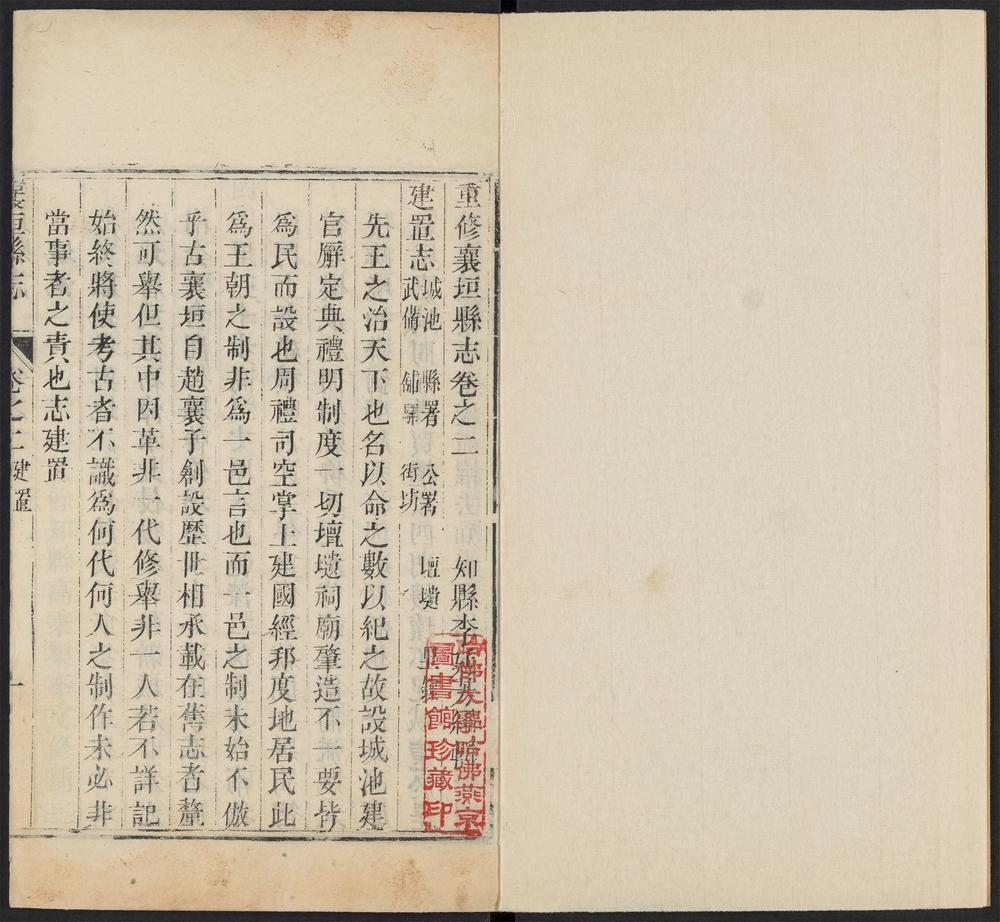 重修襄垣縣志卷之二 知縣李廷芳編輯
建置志 城池 縣署 公署 壇壝 里鎮
武備 舖驛 街坊
先王之治天下也名以命之數以紀之故設城池建
官廨定典禮明制度一切壇壝祠廟肇造不一要皆
爲民而設也周禮司空掌土建國經邦度地居民此
爲王朝之制非爲一邑言也而一邑之制未始不倣
乎古襄垣自趙襄子創設歷世相承載在舊志者釐
然可舉但其中因革非一代修舉非一人若不詳記
始終將使考古者不識爲何代何人之制作未必非
當事者之責也志建置
襄垣縣志 卷之二 建置 一
哈佛大學哈佛燕京
圖書館珍藏印